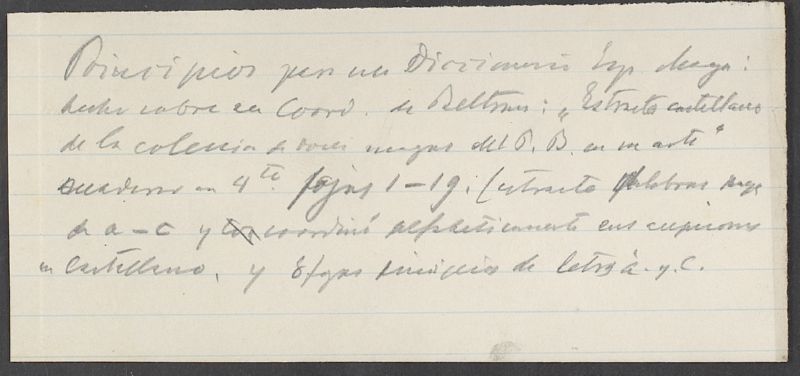 Principios para un Diccionario Esp. Maya:
hecho sobre el Coord. de Beltran: "Estracto castellano
de la coleccion de voces mayas del P. B. en su arte"
cuaderno en 4to. fojas 1-19. (estracto palabras maya
de a - c y coordinó alfabeticamente sus
en Castellano, y 8 fojas principios de letra a. y C.